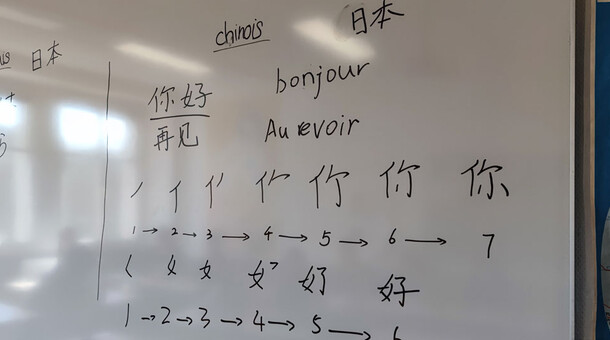 日本
chinois 日本
你好 bonjour
再见 Au revoir
你
1 → 2 → 3 → 4 → 5 → 6 → 7
好
1 → 2 → 3 → 4 → 5 → 6